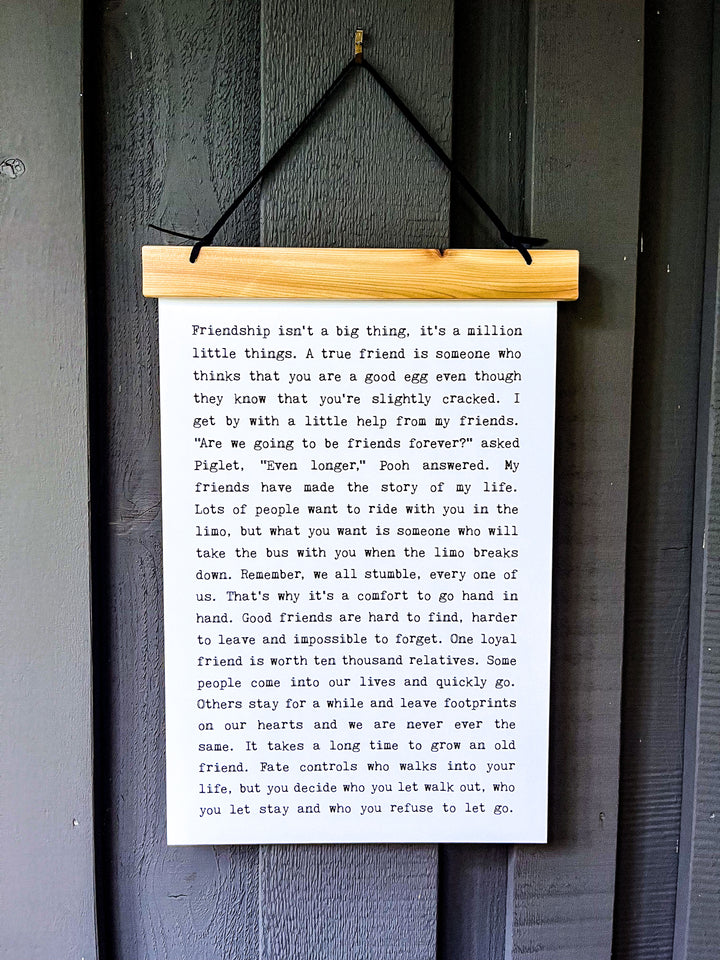 Friendship isn't a big thing, it's a million
little things. A true friend is someone who
thinks that you are a good egg even though
they know that you're slightly cracked. I
get by with a little help from my friends.
"Are we going to be friends forever?" asked
Piglet, "Even longer," Pooh answered. My
friends have made the story of my life.
Lots of people want to ride with you in the
limo, but what you want is someone who will
take the bus with you when the limo breaks
down. Remember, we all stumble, every one of
us. That's why it's a comfort to go hand in
hand. Good friends are hard to find, harder
to leave and impossible to forget. One loyal
friend is worth ten thousand relatives. Some
people come into our lives and quickly go.
Others stay for a while and leave footprints
on our hearts and we are never ever the
same. It takes a long time to grow an old
friend. Fate controls who walks into your
life, but you decide who you let walk out, who
you let stay and who you refuse to let go.